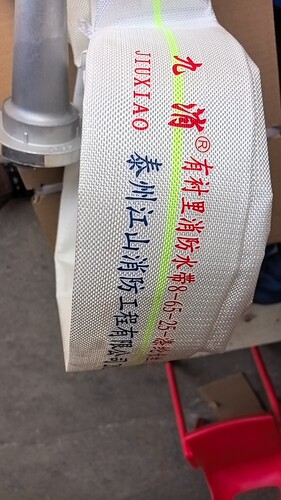 九消®有衬里消防水带8-65-25-涤纶
JIUXIAO
泰州江山消防工程有限公司